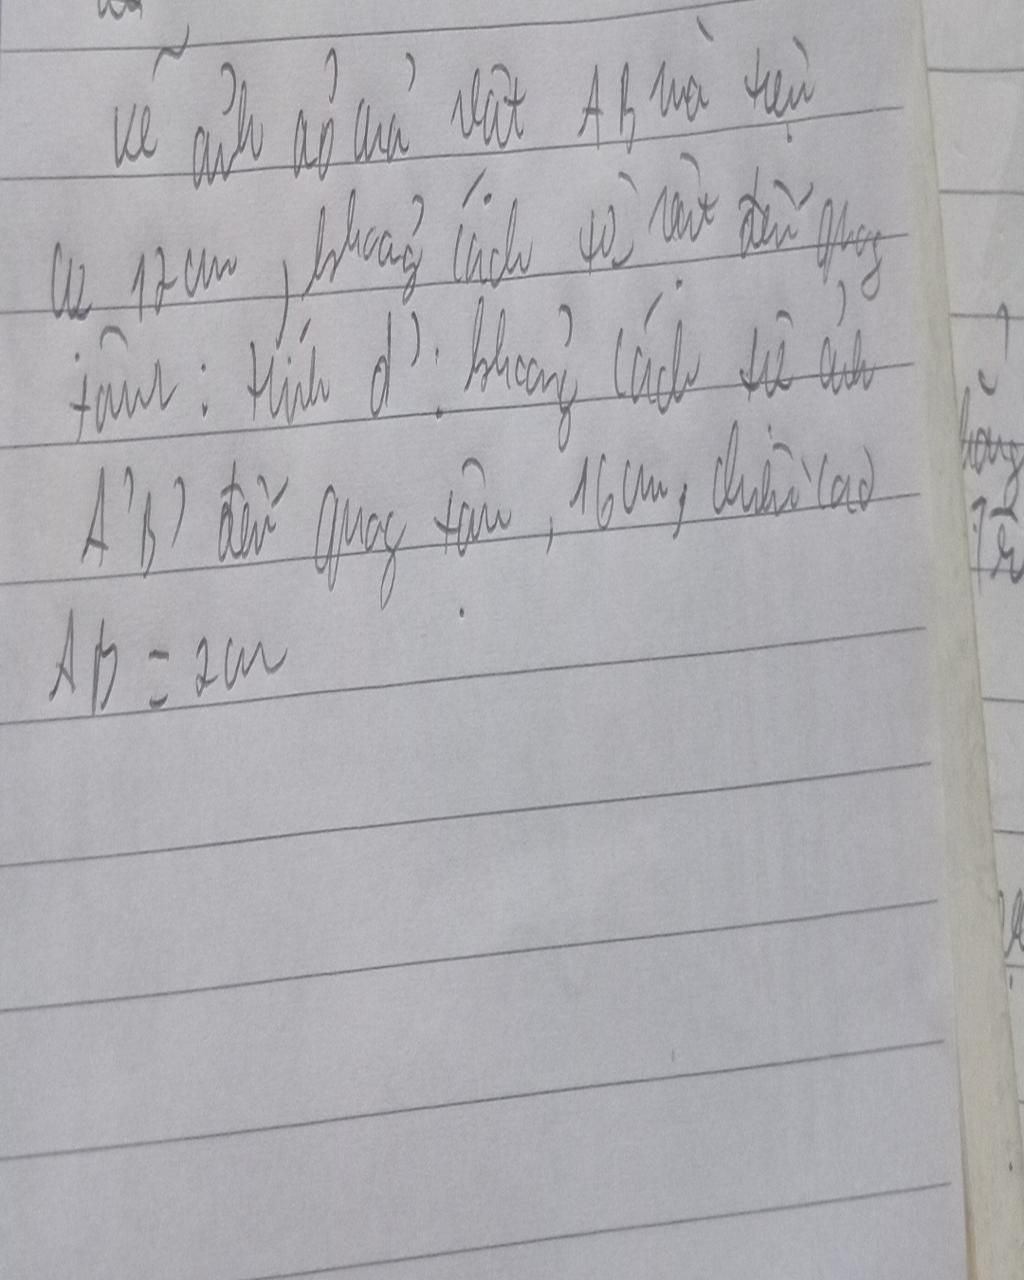 vẽ ảnh ảo của vật AB mà tiêu
cự 12cm, khoảng cách từ vật đến quag
tâm: tính d': khoảng cách từ ảnh
A'B' đến quag tâm, 16cm, chiều cao
AB = 2cm